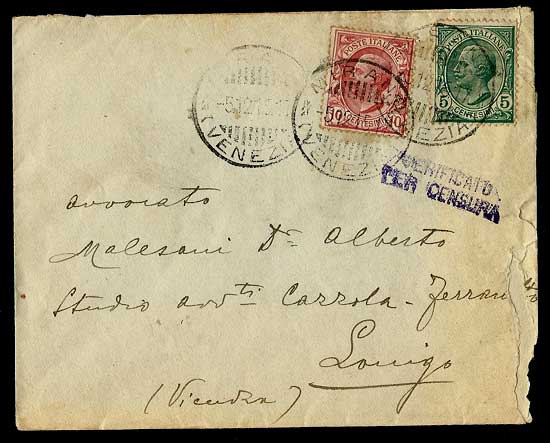 POSTE ITALIANE
10 CENTESIMI 10
POSTE ITALIANE
5 CENTESIMI 5
(VENEZIA)
(VENEZIA)
VENEZIA
VERIFICATO
PER CENSURA
Avvocato
Malesani Dr Alberto
Studio avvti Cazzola-
Lonigo
(Vicenza)